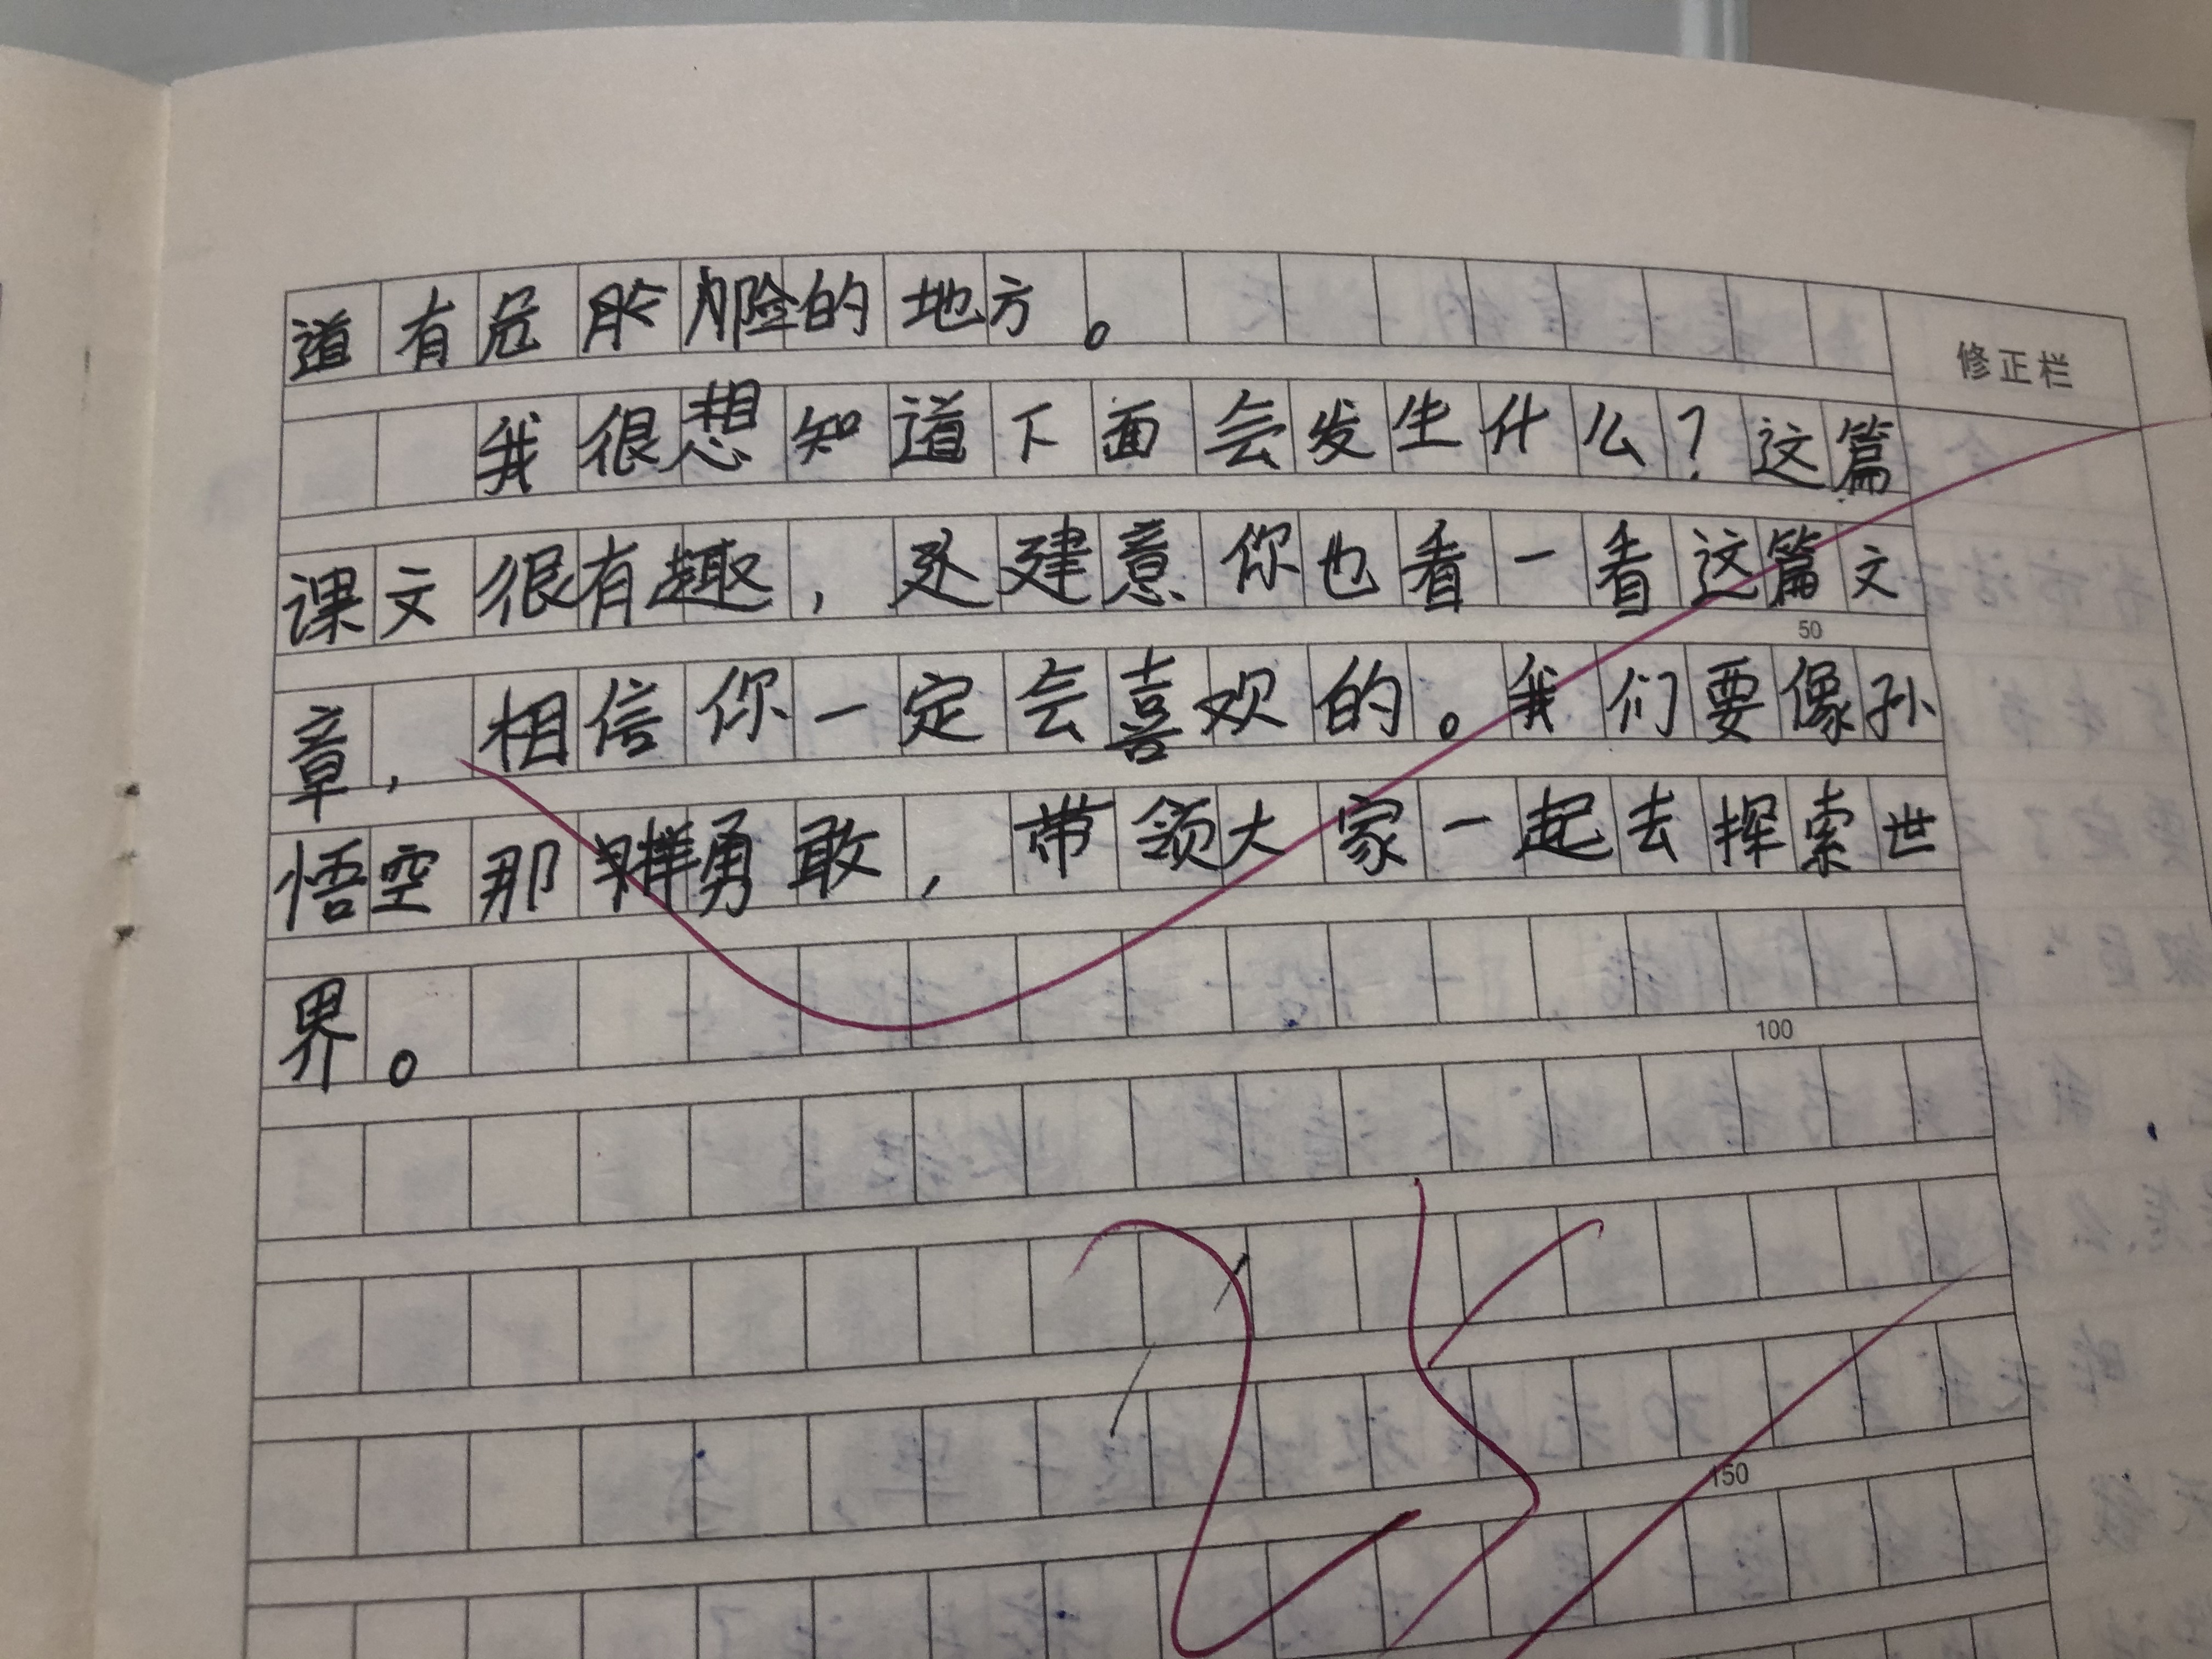 道有危险的地方。
修正栏
我很想知道下面会发生什么?这篇
课文很有趣,建意你也看一看这篇文
50
章,相信你一定会喜欢的。我们要像孙
悟空那样勇敢,带领大家一起去探索世
界。
100
25
150